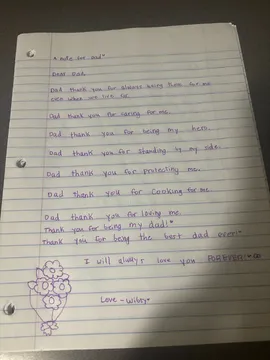 A note for Dad"
Dear Dad,
Dad thank you for always being there for me
even when we live far.
Dad thank you for caring for me.
Dad thank you for being my hero.
Dad thank you for standing by my side.
Dad thank you for protecting me.
Dad thank you for cooking for me
Dad thank you for loving me.
Thank you for being my dad!
Thank you for being the best dad ever!
I will always love you FOREVER!
Love -